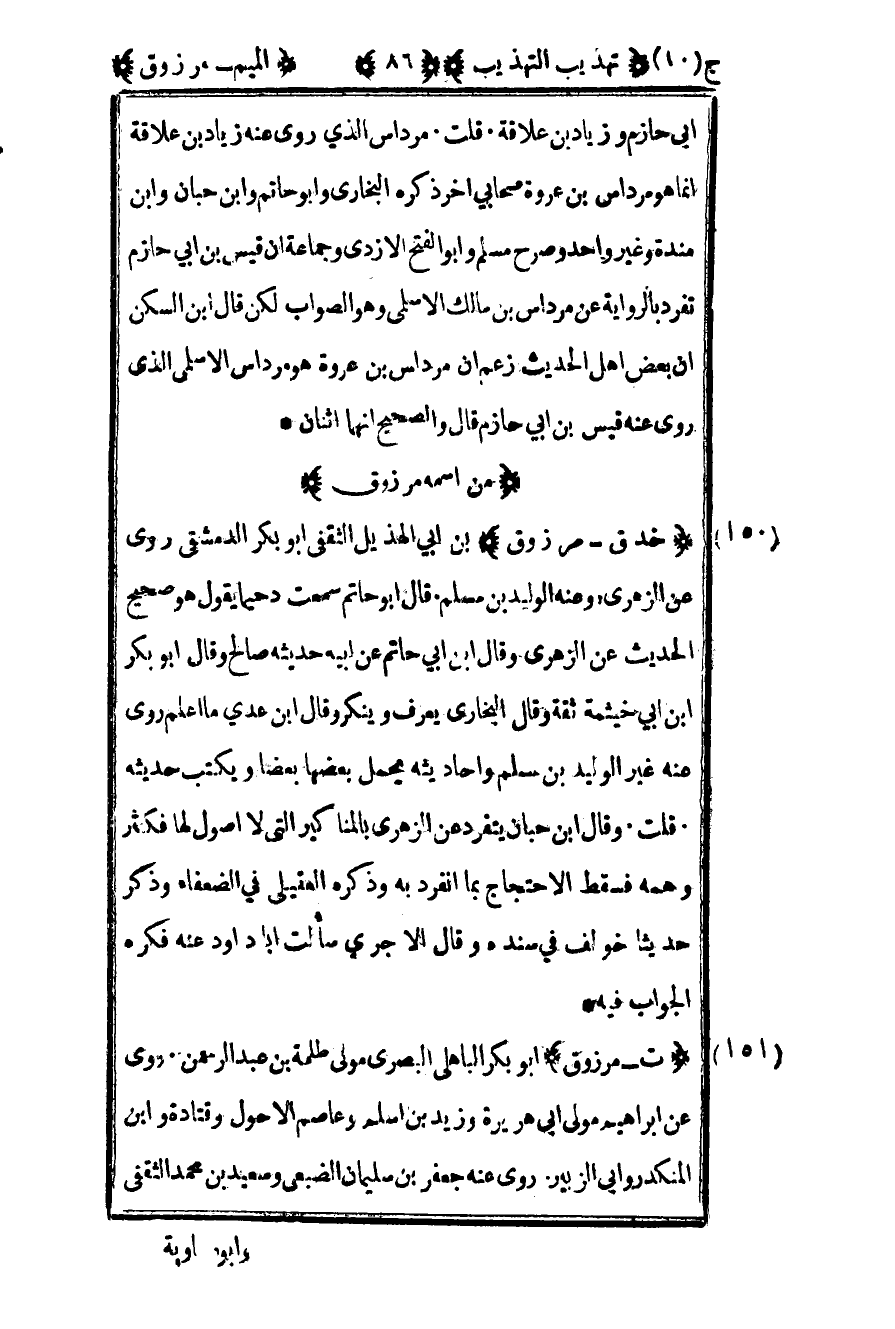 ج(١٠) ﴿ تهذيب التهذيب ﴾ ﴿ ٨٦ ﴾ ﴿ الميم ـ مرزوق ﴾
ابي حازم وزياد بن علاقة · قلت · مرداس الذي روى عنه زياد بن علاقة
انما هو مرداس بن عروة صحابي اخر ذكره البخارى وابو حاتم وابن حبان وابن
مندة وغير واحد وصرح مسلم وابو الفتح الازدى وجماعة ان قيس بن ابي حازم
تفرد بالرواية عن مرداس بن مالك الاسلمى وهو الصواب لكن قال ابن السكن
ان بعض اهل الحديث زعم ان مرداس بن عروة هو مرداس الاسلمى الذى
روى عنه قيس بن ابي حازم قال والصحيح انهما اثنان *
﴿ من اسمه مرزوق ﴾
(١٥٠) ﴿ خد ق ـ مرزوق ﴾ بن ابي الهذيل الثقفى ابو بكر الدمشقى روى
عن الزهرى وعنه الوليد بن مسلم · قال ابو حاتم سمعت دحيما يقول هو صحيح
الحديث عن الزهرى وقال ابن ابي حاتم عن ابيه حديثه صالح وقال ابو بكر
ابن ابي خيثمة ثقة وقال البخارى يعرف وينكر وقال ابن عدي ما اعلم روى
عنه غير الوليد بن مسلم واحاديثه يحمل بعضها بعضا ويكتب حديثه
· قلت · وقال ابن حبان يتفرد عن الزهرى بالمناكير التى لا اصول لها فكثر
وهمه فسقط الاحتجاج بما انفرد به وذكره العقيلى في الضعفاء وذكر
حديثا خولف في سنده وقال الاجري سألت ابا داود عنه فكره
الجواب فيه *
(١٥١) ﴿ ت ـ مرزوق ﴾ ابو بكر الباهلى البصرى مولى طلحة بن عبد الرحمن · روى
عن ابراهيم مولى ابي هريرة وزيد بن اسلم وعاصم الاحول وقتادة وابن
المنكدر وابي الزبير · روى عنه جعفر بن سليمان الضبعى وسعيد بن محمد الثقفى
وابو اوية